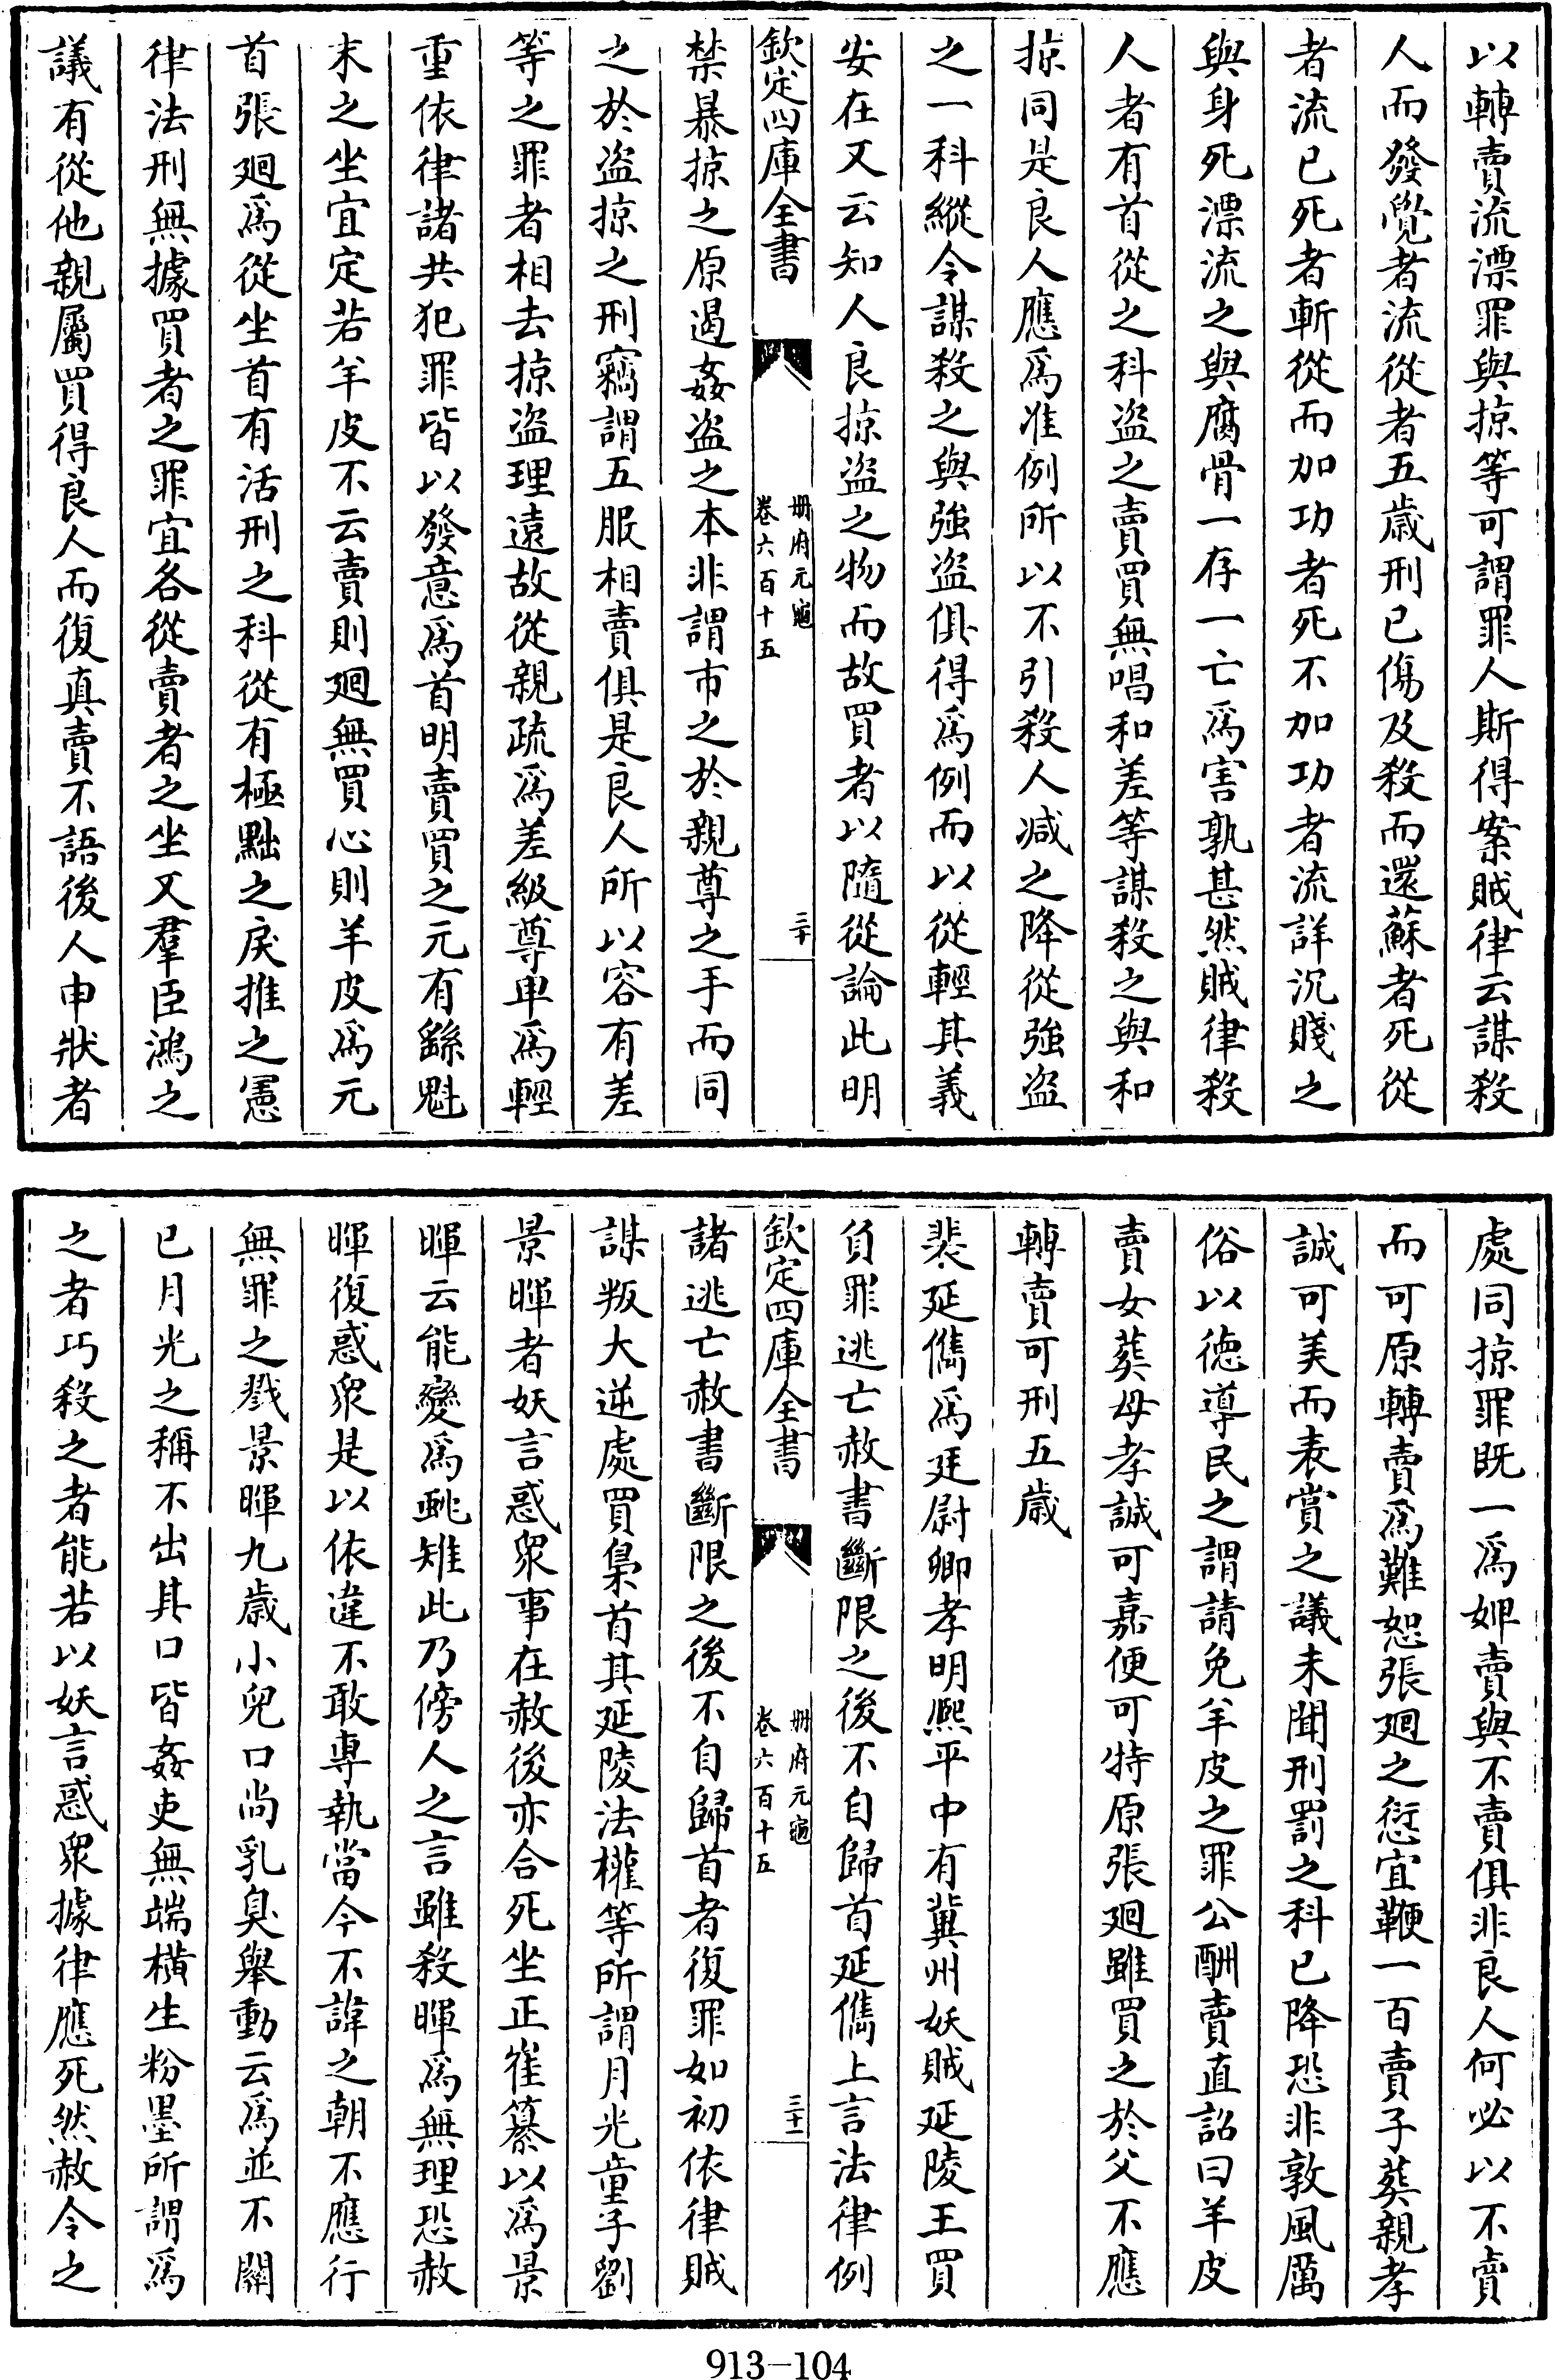 以轉賣流漂罪與掠等可謂罪人斯得案賊律云謀殺
人而發覺者流從者五歲刑已傷及殺而還蘇者死從
者流已死者斬從而加功者死不加功者流詳沉賤之
與身死漂流之與腐骨一存一亡爲害孰甚然賊律殺
人者有首從之科盜之賣買無唱和差等謀殺之與和
掠同是良人應爲准例所以不引殺人减之降從強盜
之一科縱令謀殺之與強盜俱得爲例而以從輕其義
安在又云知人良掠盜之物而故買者以隨從論此明
欽定四庫全書
册府元龜
卷六百十五
三十
禁暴掠之原遏姦盜之本非謂市之於親尊之手而同
之於盜掠之刑竊謂五服相賣俱是良人所以容有差
等之罪者相去掠盜理遠故從親疏爲差級尊卑爲輕
重依律諸共犯罪皆以發意爲首明賣買之元有繇魁
末之坐宜定若羊皮不云賣則廻無買心則羊皮爲元
首張廻爲從坐首有活刑之科從有極黜之戾推之憲
律法刑無據買者之罪宜各從賣者之坐又羣臣鴻之
議有從他親屬買得良人而復真賣不語後人申狀者
處同掠罪既一爲婢賣與不賣俱非良人何必以不賣
而可原轉賣爲難恕張廻之愆宜鞭一百賣子葬親孝
誠可美而表賞之議未聞刑罰之科已降恐非敦風厲
俗以徳導民之謂請免羊皮之罪公酬賣直詔曰羊皮
賣女葬母孝誠可嘉便可特原張廻雖買之於父不應
轉賣可刑五歲
裴延儁爲廷尉卿孝明熙平中有冀州妖賊延陵王買
負罪逃亡赦書斷限之後不自歸首延儁上言法律例
欽定四庫全書
册府元龜
卷六百十五
三十一
諸逃亡赦書斷限之後不自歸首者復罪如初依律賊
謀叛大逆處買梟首其延陵法權等所謂月光童子劉
景暉者妖言惑衆事在赦後亦合死坐正崔纂以爲景
暉云能變爲虵雉此乃傍人之言雖殺暉爲無理恐赦
暉復惑衆是以依違不敢專執當今不諱之朝不應行
無罪之戮景暉九歲小兒口尚乳臭舉動云爲並不關
已月光之稱不出其口皆姦吏無端横生粉墨所謂爲
之者巧殺之者能若以妖言惑衆據律應死然赦令之
913-104